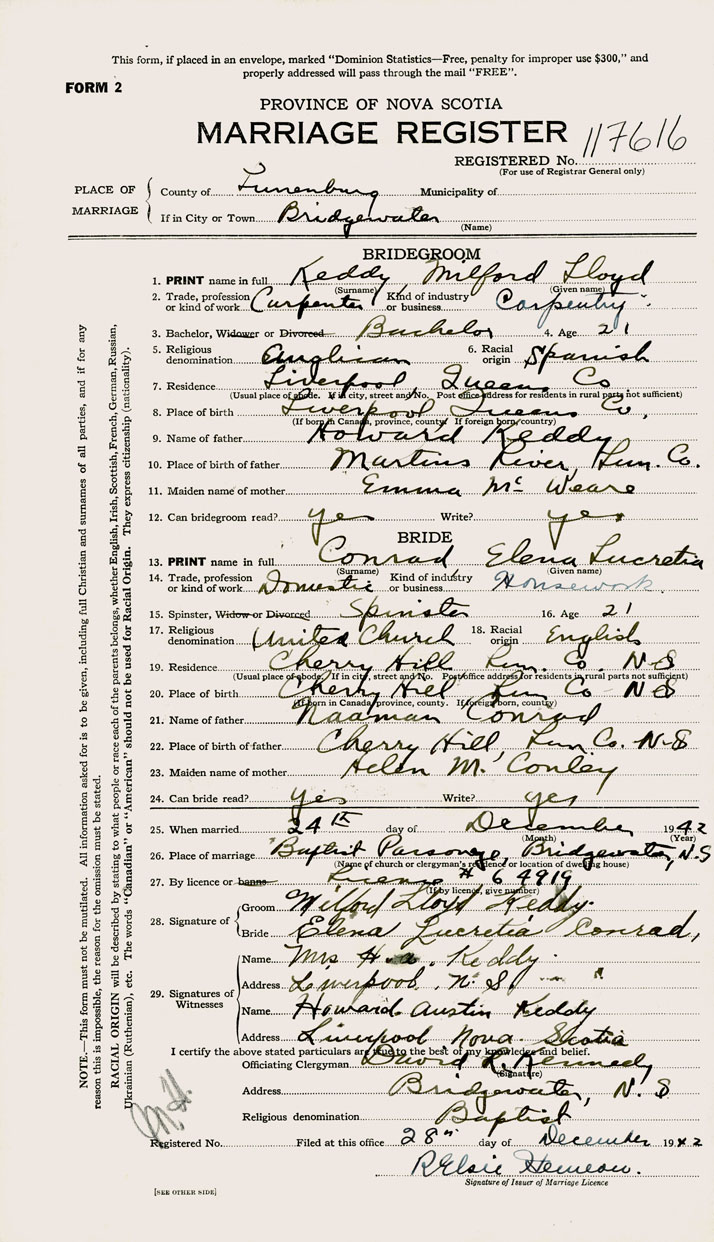 This form, if placed in an envelope, marked "Dominion Statistics—Free, penalty for improper use $300," and
properly addressed will pass through the mail "FREE".
FORM 2
PROVINCE OF NOVA SCOTIA
MARRIAGE REGISTER 117616
REGISTERED No.
(For use of Registrar General only)
PLACE OF MARRIAGE
County of Lunenburg Municipality of
If in City or Town Bridgewater
(Name)
BRIDEGROOM
1. PRINT name in full Keddy Milford Lloyd
(Surname) (Given name)
2. Trade, profession or kind of work Carpenter Kind of industry or business Carpentry
3. Bachelor, Widower or Divorced Bachelor 4. Age 21
5. Religious denomination Anglican 6. Racial origin Spanish
7. Residence Liverpool, Queens Co
(Usual place of abode. If in city, street and No. Post office address for residents in rural parts not sufficient)
8. Place of birth Liverpool Queens Co,
(If born in Canada, province, county. If foreign born, country)
9. Name of father Howard Keddy
10. Place of birth of father Martins River, Lun. Co.
11. Maiden name of mother Emma Mc Weare
12. Can bridegroom read? yes Write? yes
BRIDE
13. PRINT name in full Conrad Elena Lucretia
(Surname) (Given name)
14. Trade, profession or kind of work Domestic Kind of industry or business Housework.
15. Spinster, Widow or Divorced Spinster 16. Age 21
17. Religious denomination United Church 18. Racial origin English
19. Residence Cherry Hill Lun. Co. N.S
(Usual place of abode. If in city, street and No. Post office address for residents in rural parts not sufficient)
20. Place of birth Cherry Hill Lun Co N S
(If born in Canada, province, county. If foreign born, country)
21. Name of father Naaman Conrad
22. Place of birth of father Cherry Hill, Lun Co. N.S
23. Maiden name of mother Helen M. Conley
24. Can bride read? yes Write? yes
25. When married 24th day of December 1942
(Month) (Year)
26. Place of marriage Baptist Parsonage, Bridgewater, N.S
(Name of church or clergyman's residence or location of dwelling house)
27. By licence or banns License # 64919
(If by licence, give number)
28. Signature of
Groom Milford Lloyd Keddy.
Bride Elena Lucretia Conrad,
29. Signatures of Witnesses
Name Mrs H. A. Keddy
Address Liverpool, N.S.
Name Howard Austin Keddy
Address Liverpool Nova Scotia
I certify the above stated particulars are true to the best of my knowledge and belief.
Officiating Clergyman David R. Kennedy
(Signature)
Address Bridgewater, N. S
Religious denomination Baptist
Registered No. Filed at this office 28" day of December 1942
R Elsie
Signature of Issuer of Marriage Licence
[SEE OTHER SIDE]
NOTE.—This form must not be mutilated. All information asked for is to be given, including full Christian and surnames of all parties, and if for any
reason this is impossible, the reason for the omission must be stated.
RACIAL ORIGIN will be described by stating to what people or race each of the parents belongs, whether English, Irish, Scottish, French, German, Russian,
Ukrainian (Ruthenian), etc. The words "Canadian" or "American" should not be used for Racial Origin. They express citizenship (nationality).